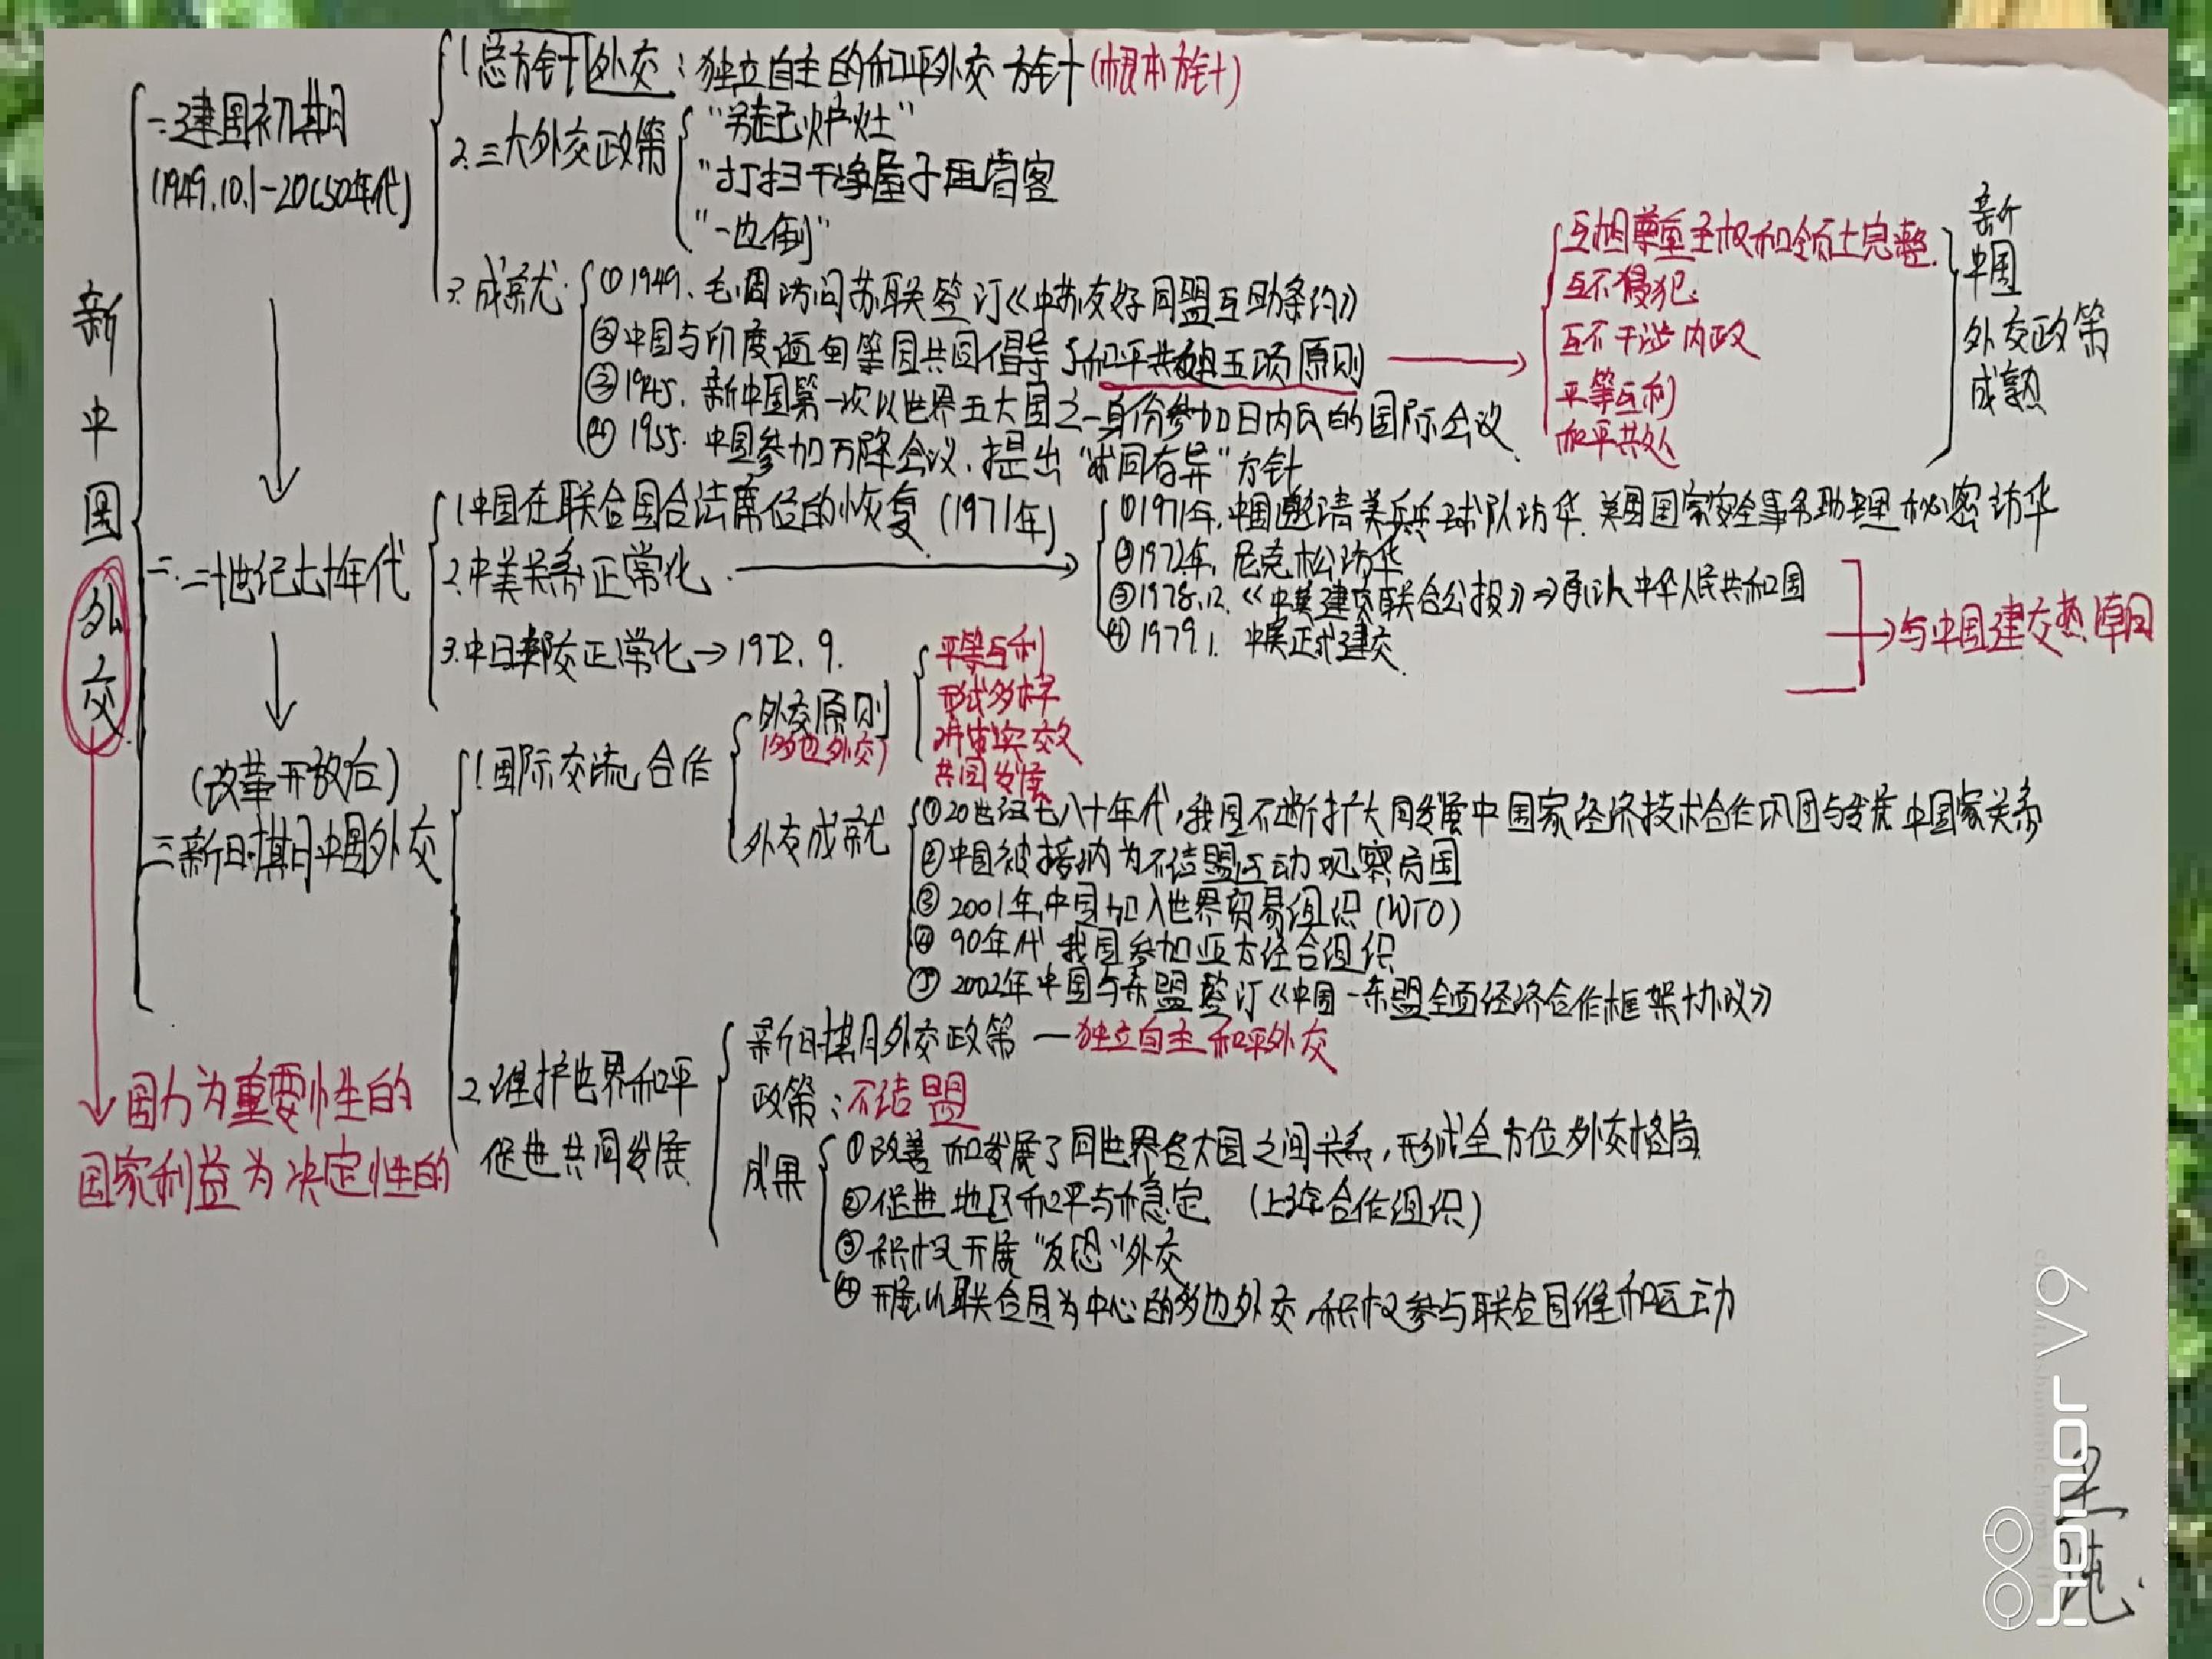 新中国外交
一.建国初期
(1949.10.1-20C50年代)
1.总方针 外交：独立自主的和平外交方针(根本方针)
2.三大外交政策
"另起炉灶"
"打扫干净屋子再请客
"一边倒"
3.成就.
①1949.毛.周访问苏联签订《中苏友好同盟互助条约》
②中国与印度缅甸等国共同倡导了和平共处五项原则
互相尊重主权和领土完整
互不侵犯
互不干涉内政
平等互利
和平共处
新中国
外交政策
成熟
③1945.新中国第一次以世界五大国之一身份参加日内瓦的国际会议
④1955.中国参加万隆会议.提出"求同存异"方针
二.二十世纪七十年代
1.中国在联合国合法席位的恢复(1971年)
2.中美关系正常化
①1971年.中国邀请美乒乓球队访华.美国国家安全事务助理秘密访华
②1972年.尼克松访华
③1978.12.《中美建交联合公报》⇒承认中华人民共和国
④1979.1.中美正式建交
3.中日邦交正常化→1972.9.
→与中国建交热潮
(改革开放后)
三.新时期中国外交
1.国际交流合作
外交原则
(多边外交)
平等互利
形式多样
讲求实效
共同发展
外交成就
①20世纪七八十年代,我国不断扩大同发展中国家经济技术合作巩固与发展中国家关系
②中国被接纳为不结盟运动观察员国
③2001年,中国加入世界贸易组织(WTO)
④90年代 我国参加亚太经合组织
⑤2002年中国与东盟签订《中国-东盟全面经济合作框架协议》
2.维护世界和平
促进共同发展
新时期外交政策—独立自主和平外交
政策：不结盟
成果
①改善和发展了同世界各大国之间关系,形成全方位外交格局
②促进地区和平与稳定 (上海合作组织)
③积极开展"反恐"外交
④开展以联合国为中心的多边外交,积极参与联合国维和运动
国力为重要性的
国家利益为决定性的
honor V9